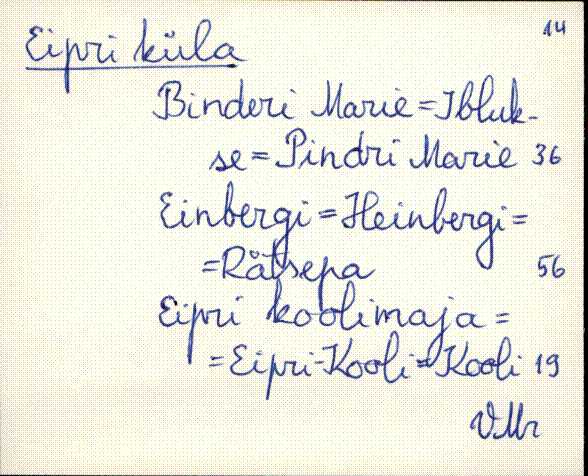 14
Eipri küla
Binderi Marie = Ibluk-
se = Pindri Marie 36
Einbergi = Heinbergi =
= Rätsepa 56
Eipri koolimaja =
= Eipri-Kooli = Kooli 19
VMr